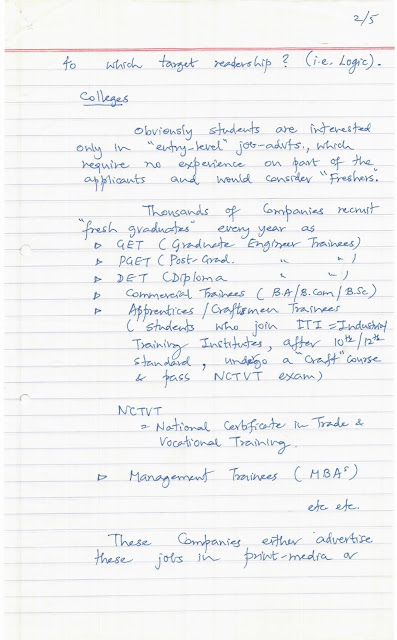 2/5
to which target readership? (i.e. Logic).
Colleges
Obviously students are interested
only in "entry-level" job-advts., which
require no experience on part of the
applicants and would consider "Freshers".
Thousands of Companies recruit
"fresh graduates" every year as
▷ GET (Graduate Engineer Trainees)
▷ PGET (Post-Grad. " " )
▷ DET (Diploma " " )
▷ Commercial Trainees (BA/B.Com/BSc)
▷ Apprentices / Craftsmen Trainees
(students who join ITI = Industrial
Training Institutes, after 10th/12th
standard, undergo a "Craft" Course
& pass NCTVT exam)
NCTVT
= National Certificate in Trade &
Vocational Training.
▷ Management Trainees (MBAs)
etc etc.
These Companies either advertise
these jobs in print-media or